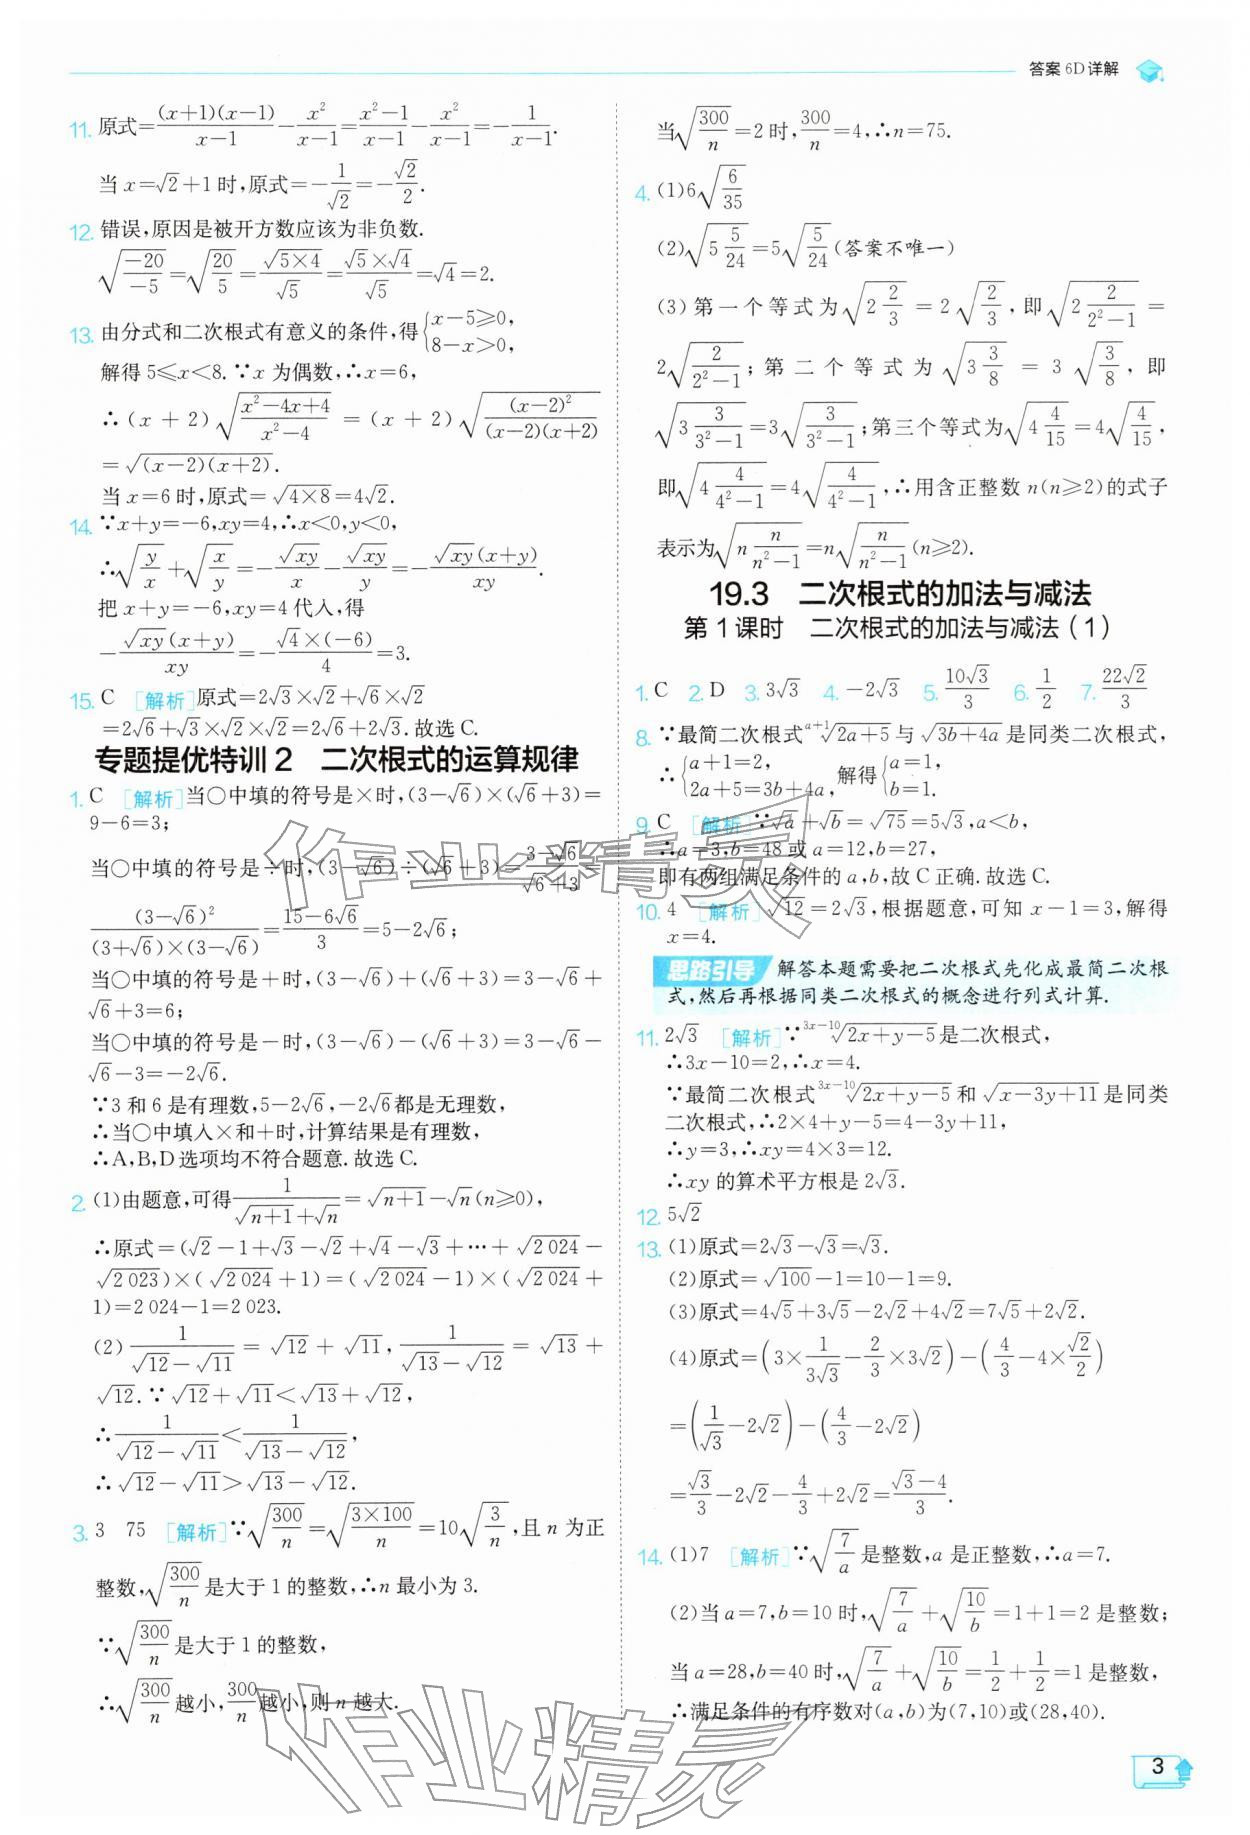 答案 6D详解
11. 原式=\frac{(x+1)(x-1)}{x-1}-\frac{x²}{x-1}=\frac{x²-1}{x-1}-\frac{x²}{x-1}=-\frac{1}{x-1}.
当 x=√2+1 时,原式=-\frac{1}{√2}=-\frac{√2}{2}.
12. 错误,原因是被开方数应该为非负数.
\sqrt{\frac{-20}{-5}}=\sqrt{\frac{20}{5}}=\frac{\sqrt{5×4}}{√5}=\frac{√5×√4}{√5}=√4=2.
13. 由分式和二次根式有意义的条件,得{x-5≥0, 8-x>0,
解得 5≤x<8.∵x 为偶数,∴x=6,
∴(x+2)\sqrt{\frac{x²-4x+4}{x²-4}}=(x+2)\sqrt{\frac{(x-2)²}{(x-2)(x+2)}}
=\sqrt{(x-2)(x+2)}.
当 x=6 时,原式=\sqrt{4×8}=4√2.
14. ∵x+y=-6,xy=4,∴x<0,y<0,
∴\sqrt{\frac{y}{x}}+\sqrt{\frac{x}{y}}=-\frac{\sqrt{xy}}{x}-\frac{\sqrt{xy}}{y}=-\frac{\sqrt{xy}(x+y)}{xy}.
把 x+y=-6,xy=4 代入,得
-\frac{\sqrt{xy}(x+y)}{xy}=-\frac{√4×(-6)}{4}=3.
15. C [解析]原式=2√3×√2+√6×√2
=2√6+√3×√2×√2=2√6+2√3.故选 C.
专题提优特训 2 二次根式的运算规律
1. C [解析]当○中填的符号是×时,(3-√6)×(√6+3)=
9-6=3;
当○中填的符号是÷时,(3-√6)÷(√6+3)=\frac{3-√6}{√6+3}=
\frac{(3-√6)²}{(3+√6)×(3-√6)}=\frac{15-6√6}{3}=5-2√6;
当○中填的符号是+时,(3-√6)+(√6+3)=3-√6+
√6+3=6;
当○中填的符号是-时,(3-√6)-(√6+3)=3-√6-
√6-3=-2√6.
∵3 和 6 是有理数,5-2√6,-2√6都是无理数,
∴当○中填入×和+时,计算结果是有理数,
∴A,B,D选项均不符合题意.故选C.
2. (1)由题意,可得\frac{1}{\sqrt{n+1}+√n}=\sqrt{n+1}-√n(n≥0),
∴原式=(√2-1+√3-√2+√4-√3+…+\sqrt{2 024}-
\sqrt{2 023})×(\sqrt{2 024}+1)=(\sqrt{2 024}-1)×(\sqrt{2 024}+
1)=2 024-1=2 023.
(2)\frac{1}{√12-√11}=√12+√11,\frac{1}{√13-√12}=√13+
√12.∵√12+√11<√13+√12,
∴\frac{1}{√12-√11}<\frac{1}{√13-√12},
∴√12-√11>√13-√12.
3. 3 75 [解析]∵\sqrt{\frac{300}{n}}=\sqrt{\frac{3×100}{n}}=10\sqrt{\frac{3}{n}},且 n 为正
整数,\sqrt{\frac{300}{n}}是大于 1 的整数,∴n 最小为 3.
∵\sqrt{\frac{300}{n}}是大于 1 的整数,
∴\sqrt{\frac{300}{n}}越小,\frac{300}{n}越小,则 n 越大.
当\sqrt{\frac{300}{n}}=2 时,\frac{300}{n}=4,∴n=75.
4. (1)6\sqrt{\frac{6}{35}}
(2)\sqrt{5\frac{5}{24}}=5\sqrt{\frac{5}{24}}(答案不唯一)
(3)第一个等式为\sqrt{2\frac{2}{3}}=2\sqrt{\frac{2}{3}},即\sqrt{2\frac{2}{2²-1}}=
2\sqrt{\frac{2}{2²-1}};第二个等式为\sqrt{3\frac{3}{8}}=3\sqrt{\frac{3}{8}},即
\sqrt{3\frac{3}{3²-1}}=3\sqrt{\frac{3}{3²-1}};第三个等式为\sqrt{4\frac{4}{15}}=4\sqrt{\frac{4}{15}},
即\sqrt{4\frac{4}{4²-1}}=4\sqrt{\frac{4}{4²-1}},∴用含正整数 n(n≥2)的式子
表示为\sqrt{n\frac{n}{n²-1}}=n\sqrt{\frac{n}{n²-1}}(n≥2).
19.3 二次根式的加法与减法
第 1 课时 二次根式的加法与减法(1)
1. C 2. D 3. 3√3 4. -2√3 5. \frac{10√3}{3} 6. \frac{1}{2} 7. \frac{22√2}{3}
8. ∵最简二次根式\sqrt[a+1]{2a+5}与\sqrt{3b+4a}是同类二次根式,
∴{a+1=2, 2a+5=3b+4a, 解得{a=1, b=1.
9. C [解析]∵√a+√b=√75=5√3,a<b,
∴a=3,b=48 或 a=12,b=27,
即有两组满足条件的 a,b,故 C 正确.故选 C.
10. 4 [解析]√12=2√3,根据题意,可知 x-1=3,解得
x=4.
思路引导 解答本题需要把二次根式先化成最简二次根
式,然后再根据同类二次根式的概念进行列式计算.
11. 2√3 [解析]∵\sqrt[3x-10]{2x+y-5}是二次根式,
∴3x-10=2,∴x=4.
∵最简二次根式\sqrt[3x-10]{2x+y-5}和\sqrt{x-3y+11}是同类
二次根式,∴2×4+y-5=4-3y+11,
∴y=3,∴xy=4×3=12.
∴xy 的算术平方根是 2√3.
12. 5√2
13. (1)原式=2√3-√3=√3.
(2)原式=√100-1=10-1=9.
(3)原式=4√5+3√5-2√2+4√2=7√5+2√2.
(4)原式=(3×\frac{1}{3√3}-\frac{2}{3}×3√2)-(\frac{4}{3}-4×\frac{√2}{2})
=(\frac{1}{√3}-2√2)-(\frac{4}{3}-2√2)
=\frac{√3}{3}-2√2-\frac{4}{3}+2√2=\frac{√3-4}{3}.
14. (1)7 [解析]∵\sqrt{\frac{7}{a}}是整数,a 是正整数,∴a=7.
(2)当 a=7,b=10 时,\sqrt{\frac{7}{a}}+\sqrt{\frac{10}{b}}=1+1=2 是整数;
当 a=28,b=40 时,\sqrt{\frac{7}{a}}+\sqrt{\frac{10}{b}}=\frac{1}{2}+\frac{1}{2}=1 是整数,
∴满足条件的有序数对(a,b)为(7,10)或(28,40).
作业精灵
作业精灵
3